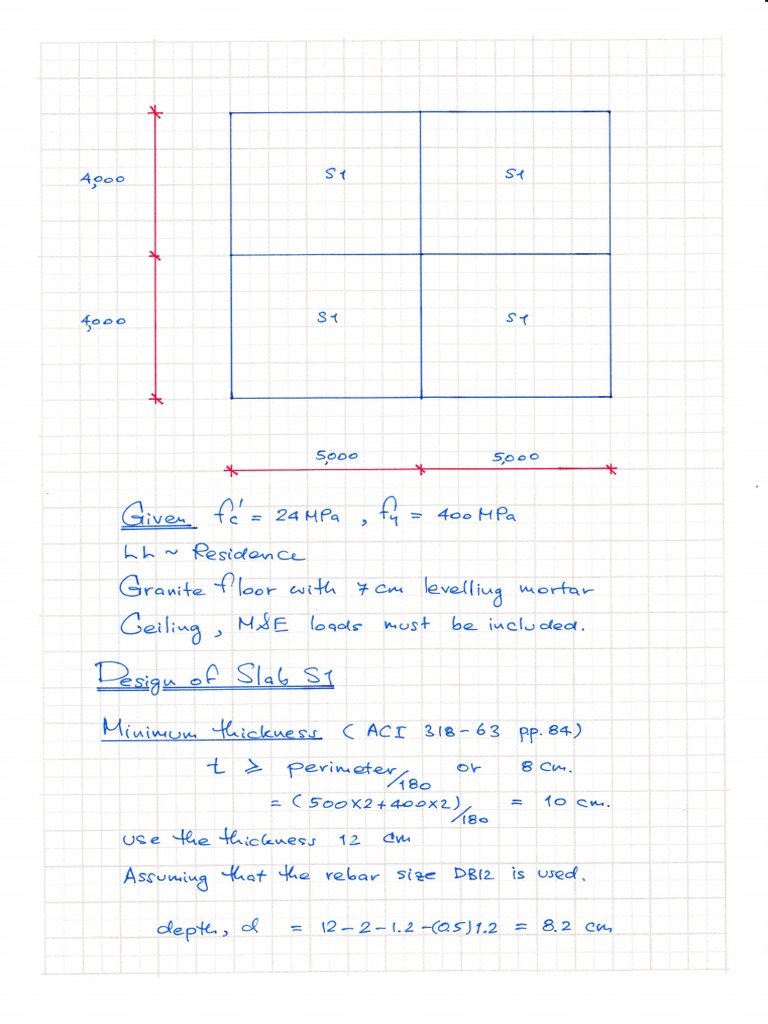 4,000
S1
S1
4,000
S1
S1
5,000
5,000
Given fc' = 24 MPa , fy = 400 MPa
LL ~ Residence
Granite floor with 7cm levelling mortar
Ceiling , M&E loads must be included.
Design of Slab S1
Minimum thickness ( ACI 318-63 pp. 84)
t ≥ perimeter/180 or 8 cm.
= (500×2+400×2)/180 = 10 cm.
use the thickness 12 cm
Assuming that the rebar size DB12 is used.
depth, d = 12-2-1.2-(0.5)1.2 = 8.2 cm